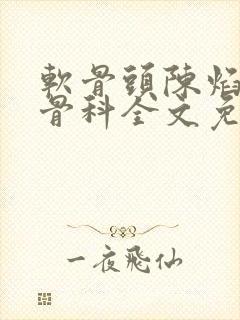 軟骨頭陳焰
骨科全文免
一夜飛仙